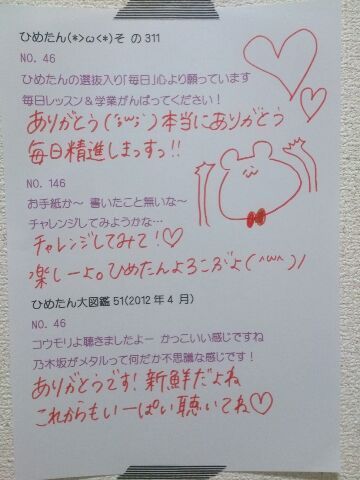 ひめたん(*>ω<*)そ の311
NO. 46
ひめたんの選抜入り「毎日」心より願っています
毎日レッスン＆学業がんばってください！
ありがとう(´;ω;｀)本当にありがとう
毎日精進しまっすっ!!
NO. 146
お手紙か～ 書いたこと無いな～
チャレンジしてみようかな…
チャレンジしてみて!♡
楽しーよ。ひめたんよろこぶよ(^ω^)ﾉ
ひめたん大図鑑 51(2012年 4 月)
NO. 46
コウモリよ聴きましたよー かっこいい感じですね
乃木坂がメタルって何だか不思議な感じです！
ありがとうです!新鮮だよね
これからもいーぱい聴いてね♡